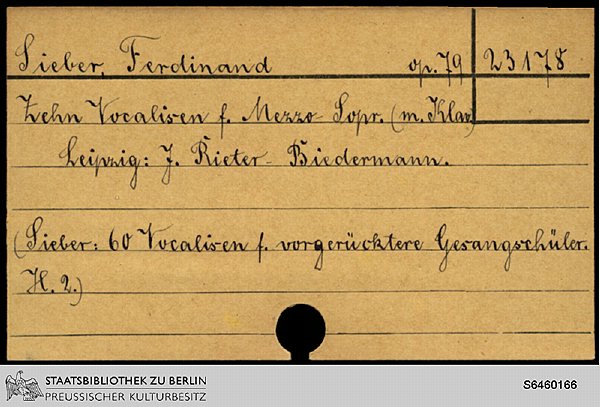 Sieber, Ferdinand op. 79 23178
Zehn Vocalisen f. Mezzo-Sopr. (m. Klav)
Leipzig: J. Rieter-Biedermann.
(Sieber: 60 Vocalisen f. vorgerücktere Gesangschüler.
H. 2.)
STAATSBIBLIOTHEK ZU BERLIN
PREUSSISCHER KULTURBESITZ
S6460166